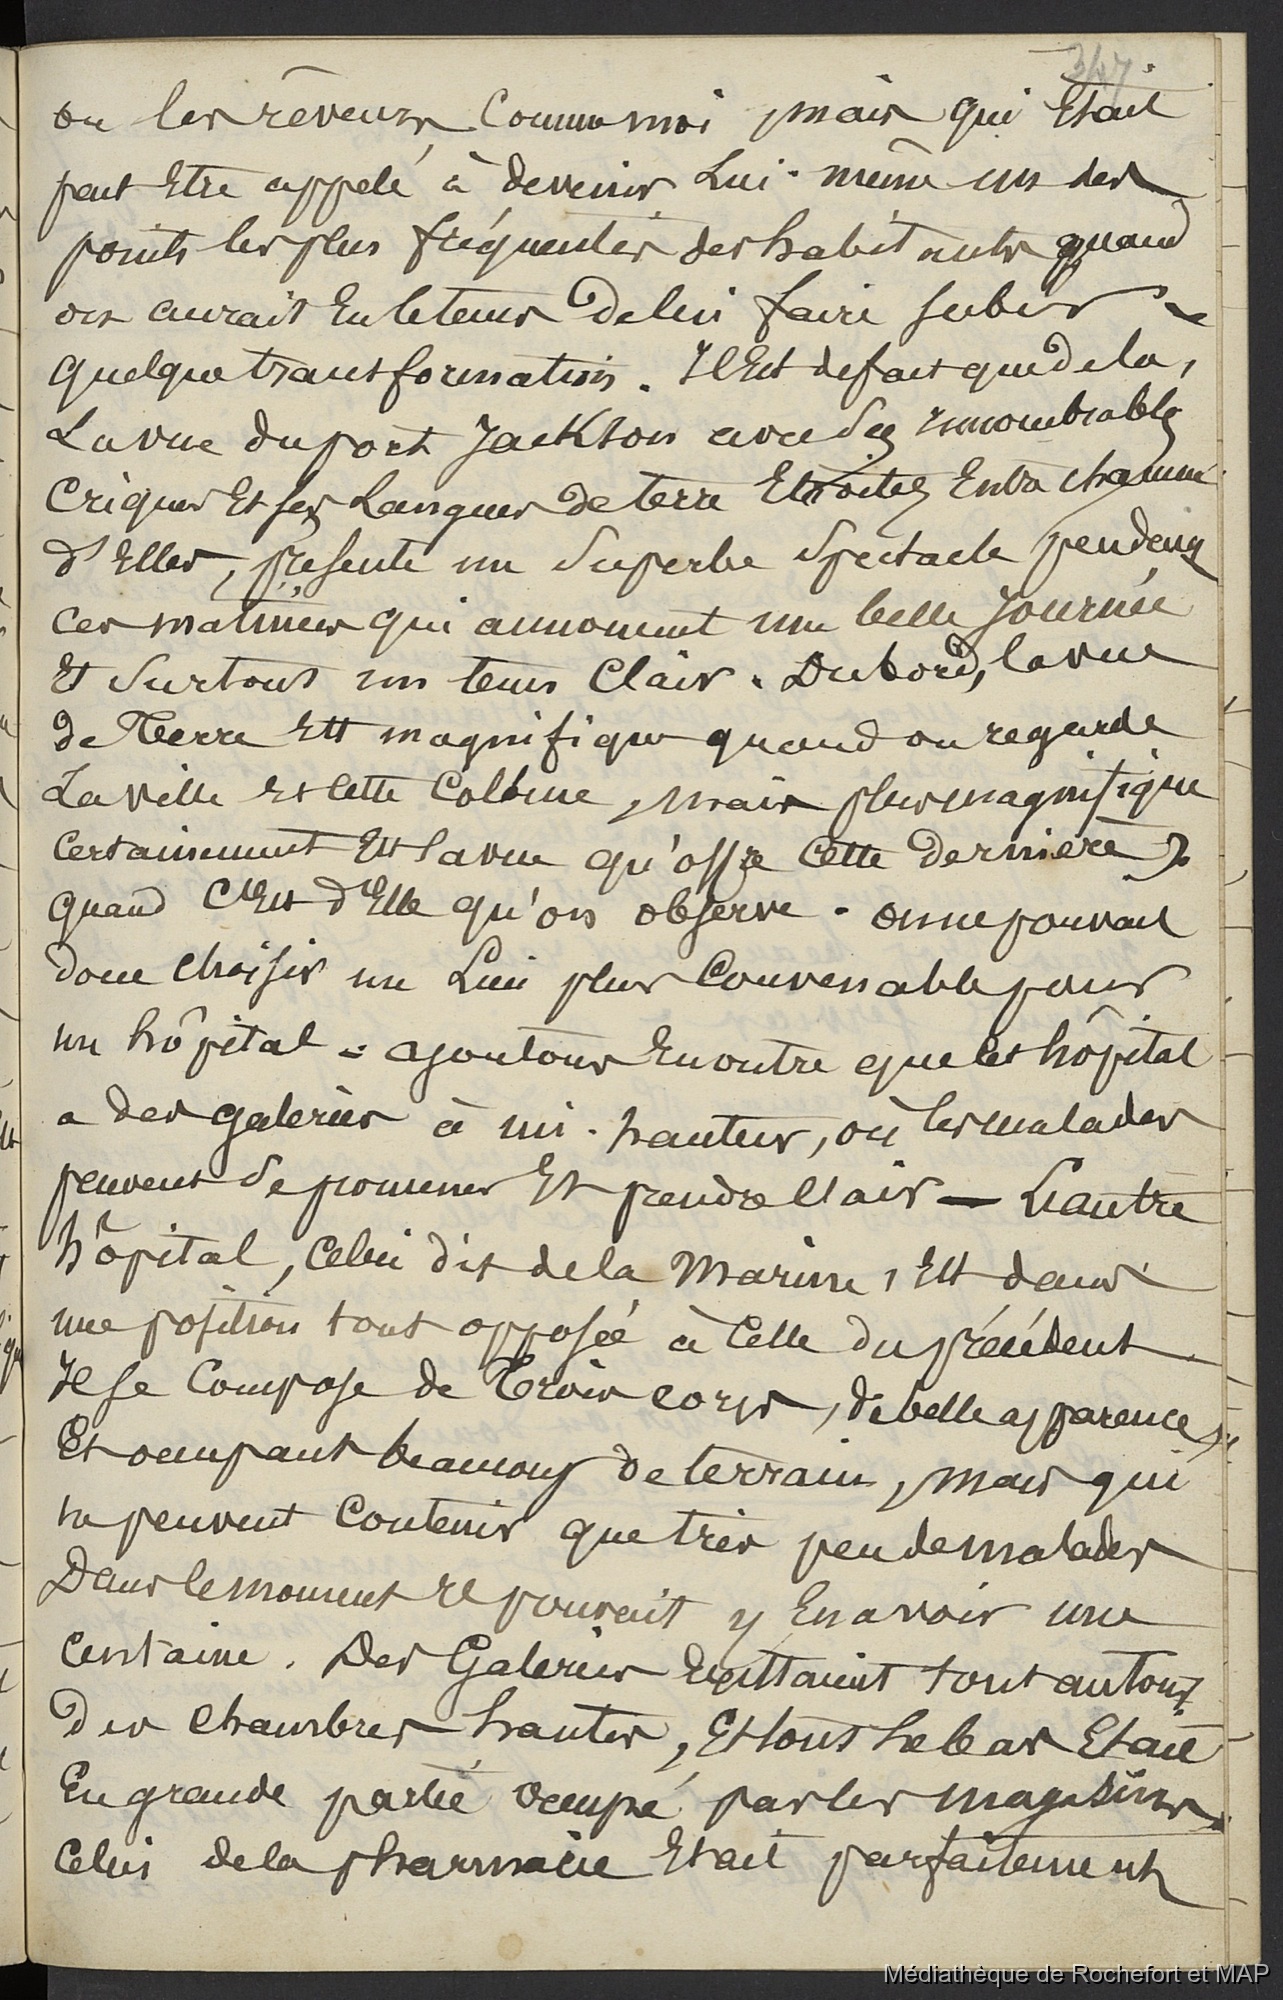 347.
ou les rêveurs Comme moi, mais qui Etait
peut Etre appelé à devenir Lui-même un des
points les plus fréquentés des habitants quand
on aurait Eu le tems de lui faire subir
quelque transformation. Il Est de fait que de la,
La vue du port Jackson avec Ses innombrables
Criques Et ses Langues de terre Etroites Entre chacune
d'Elles, présente un Superbe Spectacle pendant
ces matinées qui annoncent une belle Journée
Et Surtout un tems Clair. Du bord, la vue
de Terre Est magnifique quand on regarde
La ville Et cette Colline, mais plus magnifique
certainement Est la vue qu'offre cette dernière
quand C'Est d'Elle qu'on observe. on ne pouvait
donc choisir un Lieu plus Convenable pour
un hôpital = ajoutons En outre que cet hôpital
a des galeries à mi-hauteur, où les malades
peuvent Se promener Et prendre l'air — L'autre
hôpital, Celui dit de la Marine, Est dans
une position tout opposée à Celle du précédent
Il se Compose de Trois corps, de belle apparence
Et occupant beaucoup de terrain, mais qui
ne peuvent Contenir que très peu de malades
Dans le moment il pouvait y En avoir une
centaine. Des Galeries Existaient tout autour
des chambres hautes, Et tout le bas Etait
En grande partie occupé par les magasins
Celui de la pharmacie Etait parfaitement
Médiathèque de Rochefort et MAP